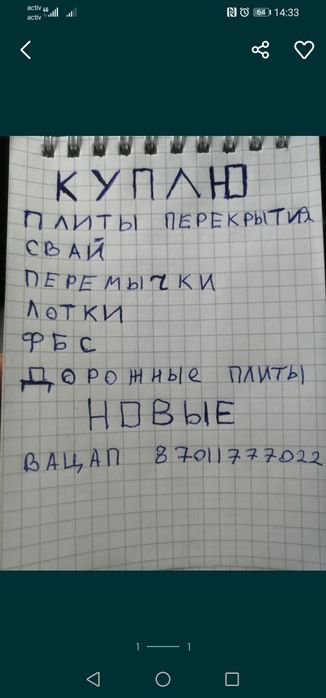 activ
activ
64
14:33
КУПЛЮ
ПЛИТЫ ПЕРЕКРЫТИЯ
СВАЙ
ПЕРЕМЫЧКИ
ЛОТКИ
ФБС
ДОРОЖНЫЕ ПЛИТЫ
НОВЫЕ
ВАЦАП 87011777022
1
1